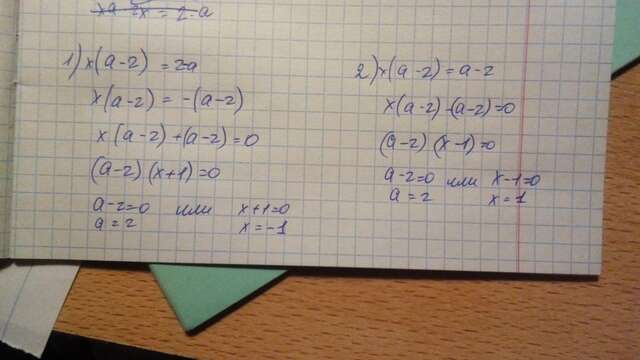 xa-2x = 2-a
1) x(a-2) = 2-a
x(a-2) = -(a-2)
x(a-2)+(a-2)=0
(a-2)(x+1)=0
a-2=0 или x+1=0
a=2 x=-1
2) x(a-2)=a-2
x(a-2)-(a-2)=0
(a-2)(x-1)=0
a-2=0 или x-1=0
a=2 x=1